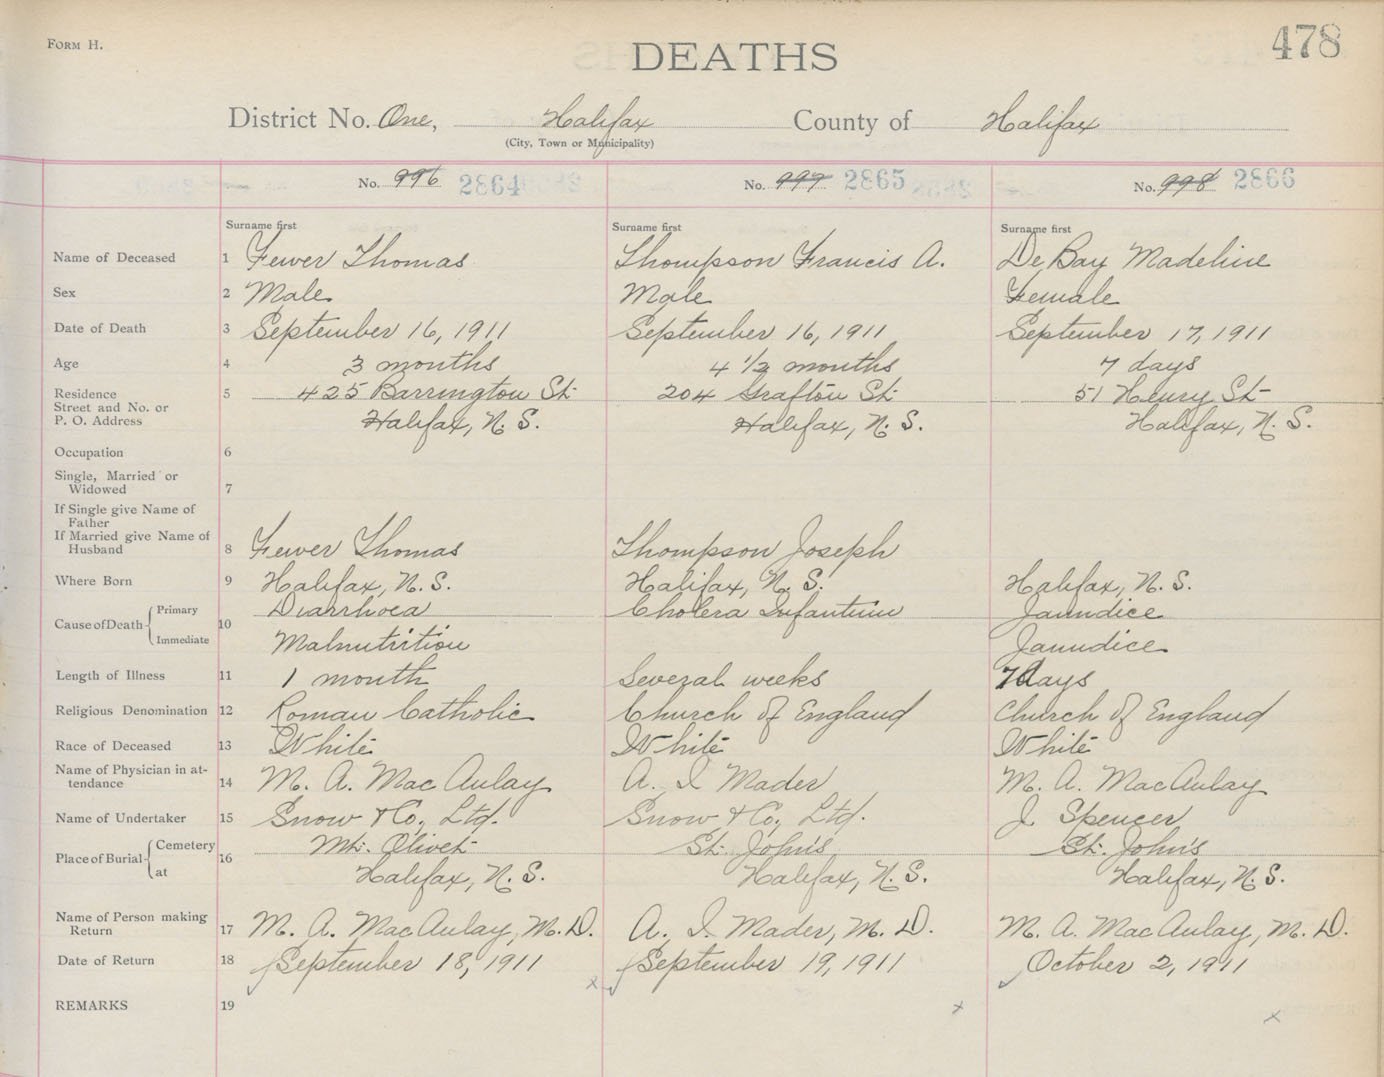 FORM H.
478
DEATHS
District No. One, Halifax County of Halifax
(City, Town or Municipality)
No. 996 2864 No. 997 2865 No. 998 2866
Surname first Surname first Surname first
Name of Deceased 1 Fewer Thomas Thompson Francis A. De Bay Madeline
Sex 2 Male Male Female
Date of Death 3 September 16, 1911 September 16, 1911 September 17, 1911
Age 4 3 months 4 1/2 months 7 days
Residence 5 425 Barrington St. 204 Grafton St. 51 Henry St
Street and No. or
P. O. Address Halifax, N. S. Halifax, N. S. Halifax, N. S.
Occupation 6
Single, Married or
Widowed 7
If Single give Name of
Father
If Married give Name of
Husband 8 Fewer Thomas Thompson Joseph
Where Born 9 Halifax, N. S. Halifax, N. S. Halifax, N. S.
Cause of Death Primary 10 Diarrhoea Cholera Infantum Jaundice
Immediate Malnutrition Jaundice
Length of Illness 11 1 month Several weeks 7 days
Religious Denomination 12 Roman Catholic Church of England Church of England
Race of Deceased 13 White White White
Name of Physician in at-
tendance 14 M. A. MacAulay A. I Mader M. A. MacAulay
Name of Undertaker 15 Snow & Co., Ltd. Snow & Co., Ltd. J. Spencer
Place of Burial Cemetery 16 Mt. Olivet St. John's St. John's
at Halifax, N. S. Halifax, N. S. Halifax, N. S.
Name of Person making
Return 17 M. A. MacAulay, M. D. A. I. Mader, M. D. M. A. MacAulay, M. D.
Date of Return 18 September 18, 1911 September 19, 1911 October 2, 1911
REMARKS 19